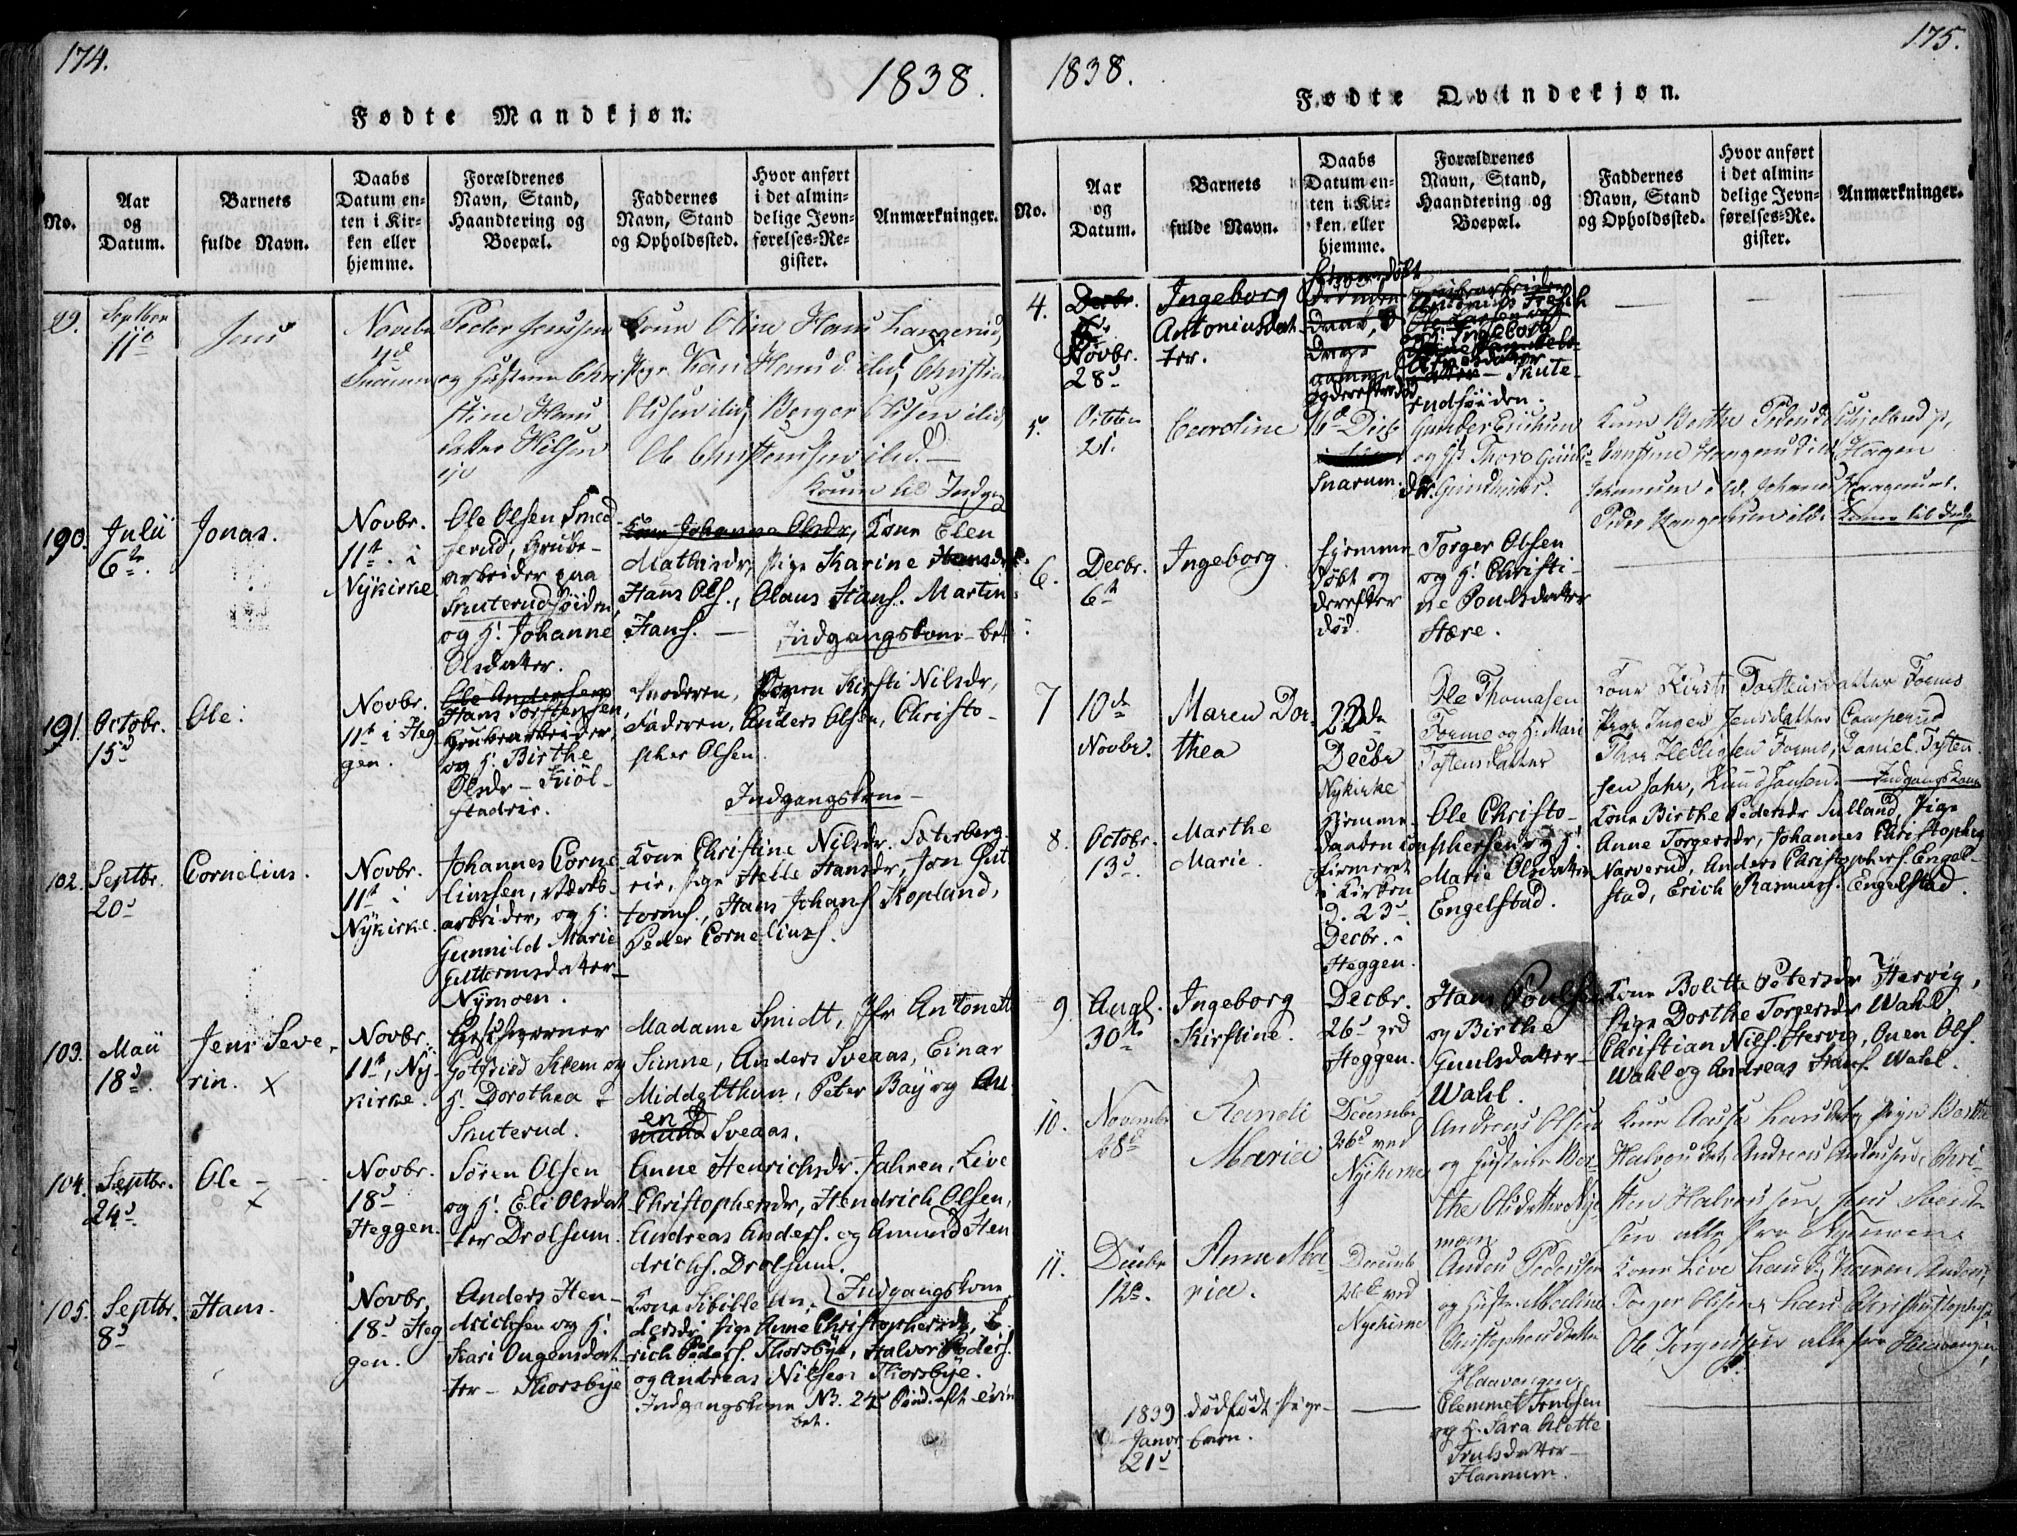 174.
1838.
Fødte Mandkjøn.
No.
Aar
og
Datum.
Barnets
fulde Navn.
Daabs
Datum en-
ten i Kir-
ken eller
hjemme.
Forældrenes
Navn, Stand,
Haandtering og
Boepæl.
Faddernes
Navn, Stand
og Opholdssted.
Hvor anført
i det almin-
delige Jevn-
førelses-Re-
gister.
Anmærkninger.
Septber
11te
Jens
Novbr
Peder Jenssen
og Hustrue Chri
stine Hans
datter
Kone Oline Hans Langerud,
Pige Kari Hans d. ibid, Christian
Olssen ibid, Børger Olssen ibid,
Ole Christenssen ibid.
190.
Julii
6te.
Jonas.
Novbr.
11te. i
Nykirke
Ole Olsen Smed
serud, Grube-
arbeider paa
Skuterudhöiden,
og H: Johanne
Olsdatter.
Kone Johanne Olsdr, Kone Elen
Mathisdr, Pige Karine Hansdr
Hans Ols., Olaus Hans. Martin
Hans. —
Indgangskone - bet
191.
Octobr.
15d
Ole.
Novbr.
11te i Heg
gen.
Ole Andersen
Hans Torstensen,
Grubearbeider,
og H: Birthe
Olsdr - Kiöl-
stadeie.
Moderen, Konen Kirsti Nilsdr,
Faderen, Anders Olsen, Christo-
pher Olsen.
Indgangskone -
102.
Septbr.
20d
Cornelius.
Novbr.
11te i
Nykirke.
Johannes Corne
liussen, Værks-
arbeider, og H:
Gunnild Marie
Guttormsdatter
Nymoen.
Kone Christine Nilsdr. Sæterberg-
eie, Pige Helle Hansdr, Jon Gut-
torms., Hans Johans Kopland,
Peder Cornelius.
103.
Maii
18d.
Jens Seve-
rin. x
Novbr.
11te, Ny-
kirke.
Geschworner
Gotfried Klem og
H: Dorothea -
Skuterud.
Madame Smidt, Jfr Antonett
Sunne, Anders Sveaas, Einar
Middelthun, Peter Bay og Au-
en
mund Sveaas.
104.
Septbr.
24d
Ole -
x
Novbr.
18d
Heggen.
Søren Olsen
og H: Eli Olsdat
ter Drolsum.
Anne Henrichsdr. Jahren, Live
Christophersdr, Hendrich Olsen,
Andreas Anders. og Amund Hen
drichs. Drolsum.
105.
Septbr.
8d
Hans.
Novbr.
18d Heg
gen.
Anders Hen-
drichsen og H:
Kari Ougensdat
ter - Thorsbye
Indgangskone
Kone Sibille An-
dersdr, Pige Anne Christophersdr, E-
rich Peders. Thorsbye, Halvor Peders.
og Andreas Nilsen Thorsbye.
Indgangskone N3. 24 s
bet.
175.
1838.
Fødte Qvindekjøn.
No.
Aar
og
Datum.
Barnets
fulde Navn.
Daabs
Datum en-
ten i Kir-
ken eller
hjemme.
Forældrenes
Navn, Stand,
Haandtering og
Boepæl.
Faddernes
Navn, Stand
og Opholdssted.
Hvor anført
i det almin-
delige Jevn-
førelses-Re-
gister.
Anmærkninger.
4.
Decbr.
Novbr.
28d
Ingeborg
Antoniusdat-
ter.
Hjemmedöbt
og derefter död
Ingeborg
Skute-
rudhöiden.
5.
Octbr
21.
Caroline
16d Decbr
Snarum.
og H: Thoro
6.
Decbr.
6te
Ingeborg
hjemme
döbt og
derefter
död.
Torger Olsen
og H: Christi-
ne Poulsdatter
Stære.
7
10de
Novbr.
Maren Dor-
thea
22de
Decbr
Nykirke
Ole Thomasen
Formo og H: Mari
Tostensdatter
Kone Kirsti Torstensdatter Formo
Pige Inger Jensdatter Camperud
Thor Helligsen Formo, Daniel Tosten-
sen Jahr, Knud Hansen. — Indgangskone
8.
Octobr.
13d.
Marthe
Marie.
Hjemme-
daaben con
firmeret
i Kirken
d. 23d
Decbr. i
Heggen.
Ole Christo-
phersen og H:
Marie Olsdatter
Engelstad.
Kone Birthe Pedersdr Sulland, Pige
Anne Torgersdr, Johannes Christophers
Narverud, Anders Christophers. Engel-
stad, Erich Rasmus. Engelstad.
9.
Augt.
30te
Ingeborg
Kirstine.
Decbr.
26d ved
Heggen.
Hans Poulsen
og Birthe
Guulsdatter
Wahl.
Kone Bolette Petersdr Hervig,
Pige Dorthe Torgersdr Wahl,
Christian Nils. Hervig, Ouen Ols.
Wahl og Andreas Hans. Wahl.
10.
November
28d
Randi
Maria
December
26d ved
Nykirke
Andreas Olsen
og Hustrue Ber-
the Olsdatter Nye
moen
Halvorsdatr, Andreas Andersen, Chri-
sten Halvorssen,
sen alle fra Nyemoen.
11.
Decbr
12te.
Anne Ma-
ria.
Decemb
26de ved
Nyekirke
Anders Pederssen
og Hustr. Maline
Christophersdatter
Haavengen
Kone Live Hansdr, Karen Andersdr,
Torger Olssen, Hans Christophersen
Ole Jørgenssen alle fra Haavengen,
1839
Janvr
21d
dödfödt Pige-
barn.
Clemmet Trulsen
og H. Sara Alette
Trulsdatter -
Flannum.